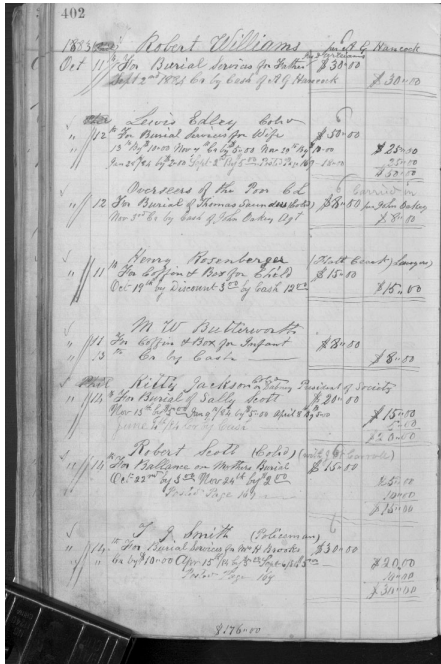 402
1893 Robert Williams A G Hancock
Oct 11th For Burial Services for Father $30.00
Sept 2nd 1894 Cr by Cash of A G Hancock $30.00
Lewis Edley Cold
" 12th For Burial Services for Wife $50.00
13th By 10.00 Nov 4th Cr by 5.00 Nov 20th By 10.00 $25.00
Jan 20/94 by 2.50 Sept 2nd By Posted Page 169 25.00
$50.00
Overseers of the Poor Cd
" 12 For Burial of Thomas Saunders (Cold) $8.00 for John Oakey
Nov 3rd Cr by Cash of John Oakey Agt $8.00
Henry Rosenberger
" 11th For Coffin & Box for Child $15.00
Oct 19th by Discount 3.00 by Cash 12.00 $15.00
M W Butterworth
" 11 For Coffin & Box for Infant $8.00
" 13th Cr by Cash $8.00
Kitty Jackson President of Society
" 14th For Burial of Sally Scott $20.00
Nov 15th by 5.00 Jany 9th/94 by 5.00 April 8th By 5.00 $15.00
June /94 Cr by Cash 5.00
$20.00
Robert Scott (Cold)
" 14th For Ballance on Mothers Burial $15.00
Oct 22nd by 3.00 Nov 24th by 2.00 5.00
Posted Page 169 10.00
$15.00
T J Smith (Policeman)
" 14th For Burial Services for Wm H Brooks $30.00
Cr by $10.00 Apr 15th 20.00
Posted Page 168 10.00
$30.00
$176.00